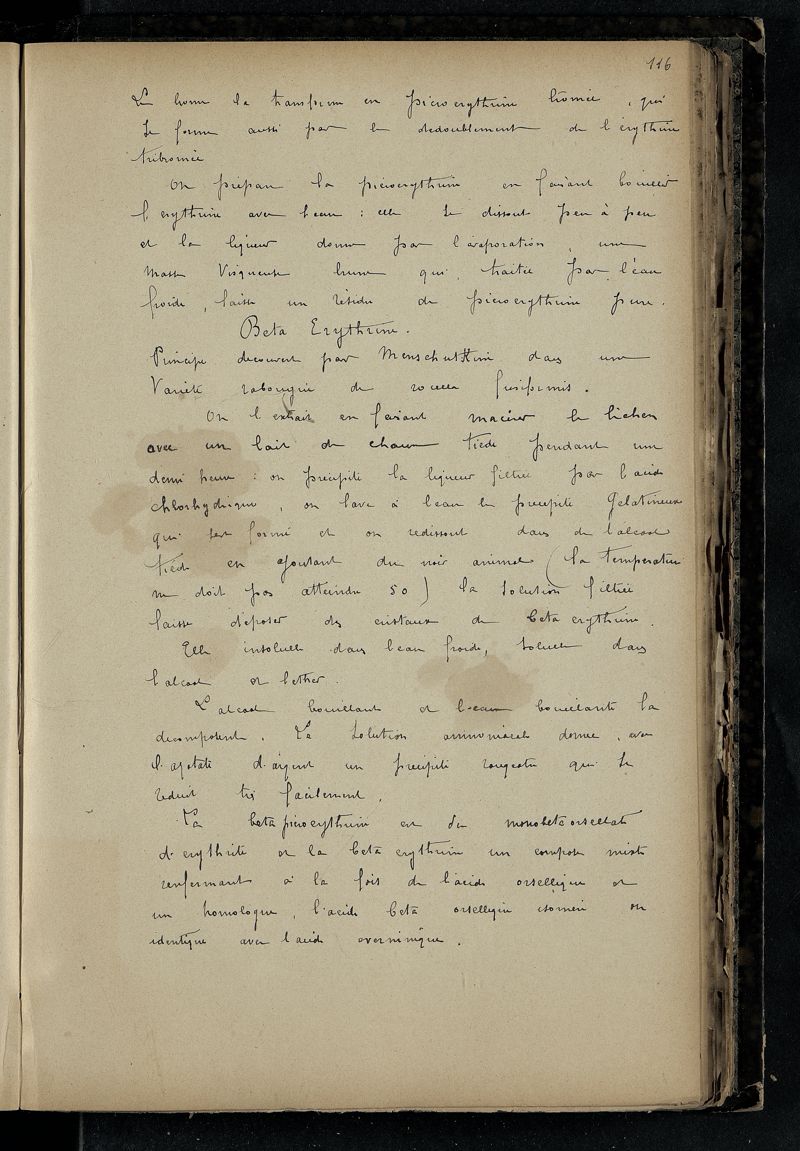 116
Le brome la transforme en picroerythrine bromée, qui
se forme aussi par le dedoublement de l'erythrine
tribromée
On prepare la picroerythrine en faisant bouillir
l'erythrine avec l'eau : elle se dissout peu à peu
et la liqueur donne par l'evaporation, une
masse visqueuse brune qui, traitée par l'eau
froide, laisse un résidu de picroerythrine pure.
Beta Erythrine.
Principe decouvert par Menschuttkine dans une
Varieté rabougrie de rocella fusiformis.
On l'extrait en faisant macérer le lichen
avec un lait de chaux tiède pendant une
demi heure : on precipite la liqueur filtrée par l'acide
chlorhydrique, on lave à l'eau le precipité gelatineux
qui s'est formé et on redissout dans de l'alcool
tiède en ajoutant du noir animal (la temperature
ne doit pas atteindre 50) la solution filtrée
laisse deposer des cristaux de beta erythrine.
Elle insoluble dans l'eau froide, soluble dans
l'alcool et l'ether.
L'alcool bouillant et l'eau bouillante la
decomposent. La solution ammoniacale donne, avec
l'azotate d'argent un precipité rougeatre qui se
reduit très facilement.
La beta picroerythrine est du monobetaorsellate
d'erythrite et la beta erythrine un composé mixte
renfermant à la fois de l'acide orsellique et
un homologue, l'acide beta orsellique isomere ou
identique avec l'acide everninique.